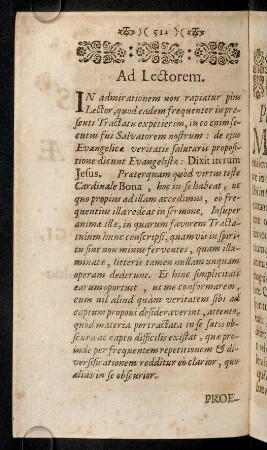 )( 511 )(
Ad Lectorem.
IN admirationem non rapiatur pius
Lector, quod eadem frequenter in præ-
senti Tractatu expetierim, in eo enim se-
cutus fui Salvatorem nostrum: de ejus
Evangelicæ veritatis salutaris proposi-
tione dicunt Evangelistæ: Dixit iterum
Jesus. Præterquam quòd virtus teste
Cardinale Bona, hoc in se habeat, ut
quo propius ad illam accedimus, eo fre-
quentius illa redeat in sermone, Insuper
animæ illæ, in quarum favorem Tracta-
tulum hunc conscripsi, quamvis in spiri-
tu sint non minus ferventes, quam illu-
minatæ, litteris tamen nullam unquam
operam dederunt. Et hinc simplicitati
earum oportuit, ut me confirmarem,
cum nil aliud quam veritatem sibi ad
captum proponi desideraverint, attento,
quòd materia pertractata in se satis ob-
scura ac captu difficilis existat, quæ pro-
inde per frequentem repetitionem &amp; di-
versificationem redditur eò clarior, quò
alias in se obscurior.
PROE-